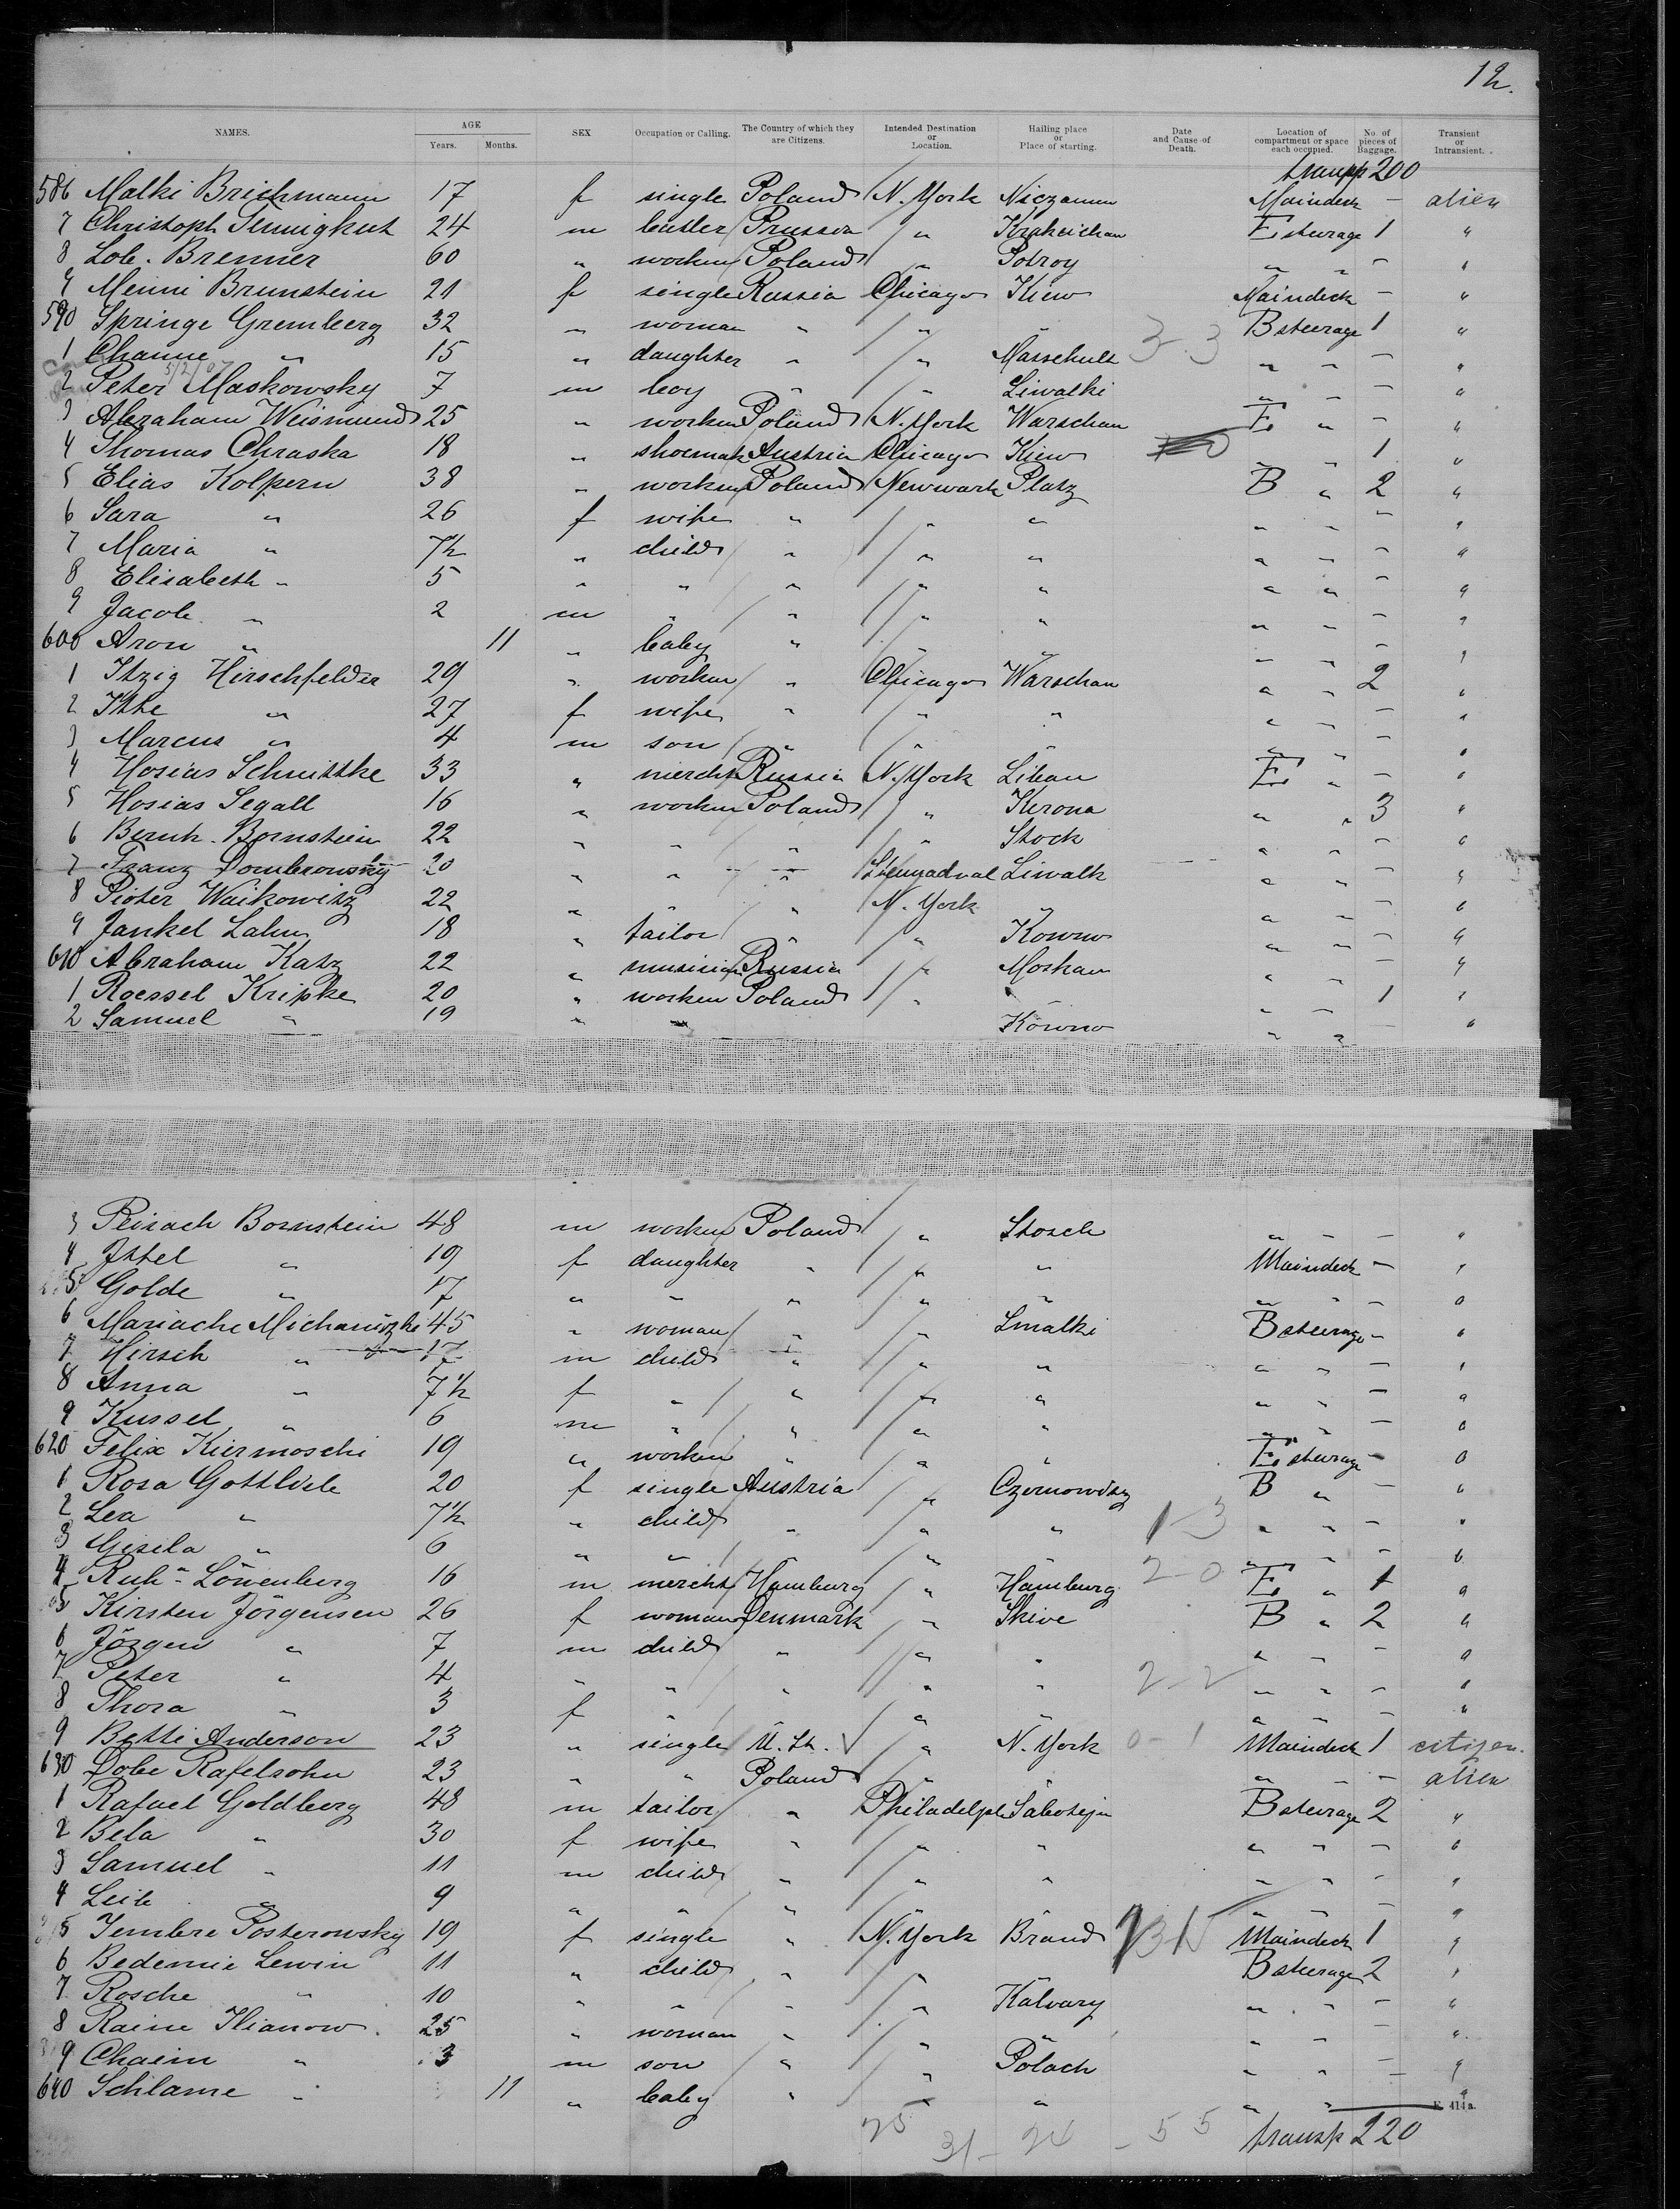 12.
NAMES. AGE Years. Months. SEX Occupation or Calling. The Country of which they are Citizens. Intended Destination or Location. Hailing place or Place of starting. Date and Cause of Death. Location of compartment or space each occupied. No. of pieces of Baggage. Transient or Intransient.
transp 200
586 Malki Brichmann 17 f single Poland N. York Maindeck - alien
7 Christoph 24 m butler Prussia " E steurage 1 "
8 Lob. Brenner 60 " worker Poland " " " - "
9 Menni Brunstein 21 f single Russia Chicago Kiew Maindeck - "
590 Springe Gremberg 32 " woman " " " B steurage 1 "
1 Channe " 15 " daughter " " " " - "
5/2/07
2 Peter Maskowsky 7 m boy " " Liwalki " " - "
3 Abraham Weismund 25 " worker Poland N. York Warschau E " - "
4 Thomas Chraska 18 " shoemak Austria Chicago Kiew " " 1 "
5 Elias Kolpern 38 " worker Poland Newwark Platz B " 2 "
6 Sara " 26 f wife " " " " " - "
7 Maria " 7½ " child " " " " " - "
8 Elisabeth " 5 " " " " " " " - "
9 Jacob " 2 m " " " " " " - "
600 Aron " 11 " baby " " " " " - "
1 Itzig Hirschfelder 29 " worker " Chicago Warschau " " 2 "
2 Itke " 27 f wife " " " " " - "
3 Marcus " 4 m son " " " " " - "
4 Hosias Schnittke 33 " mercht Russia N. York Libau E " - "
5 Hosias Segall 16 " worker Poland " Kerona " " 3 "
6 Bernh. Bornstein 22 " " " " Stock " " - "
7 Franz Dombrowsky 20 " " " Liwalk " " - "
8 Pioter Waikowitz 22 " " " N. York " " " - "
9 Jankel Lahn 18 " tailor " " Kowno " " - "
610 Abraham Katz 22 " musician Russia " Moskau " " - "
1 Roessel Kripke 20 " worker Poland " " " " 1 "
2 Samuel " 19 " " Kowno " " - "
3 Peisach Bornstein 48 m worker Poland " Stosch " " - "
4 Ittel " 19 f daughter " " " Maindeck - "
5 Golde " 17 " " " " " " " - "
6 Mariache 45 " woman " " B steurage - "
7 Hirsch " 17 m child " " " " " - "
8 Anna " 7½ f " " " " " " - "
9 Kussel " 6 m " " " " " " - "
620 Felix Kiermoschi 19 " worker " " " E steurage - "
1 Rosa Gottlieb 20 f single Austria " Czernowitz B " - "
2 Lea " 7½ " child " " " " " - "
3 Gisela " 6 " " " " " " " - "
4 Rub- Löwenberg 16 m mercht Hamburg " Hamburg 2-0 E " 1 "
5 Kirsten Jörgensen 26 f woman Denmark " Skive B " 2 "
6 Jörgen " 7 m child " " " " " - "
7 Peter " 4 " " " " " 2-2 " " - "
8 Thora " 3 f " " " " " " - "
9 Betti Anderson 23 " single U. St. " N. York 0-1 Maindeck 1 citizen.
630 Dobe Rafelsohn 23 " " Poland " " " " - alien
1 Rafael Goldberg 48 m tailor " Philadelph B steurage 2 "
2 Bela " 30 f wife " " " " " - "
3 Samuel " 11 m child " " " " " - "
4 Leib " 9 " " " " " " " - "
5 Posterowsky 19 f single " N. York Brand Maindeck 1 "
6 Bedemie Lewin 11 " child " " " B steurage 2 "
7 Rosche " 10 " " " " Kalvary " " - "
8 Raine Ilianow 25 " woman " " " " " - "
9 Chaim " 3 m son " " Polach " " - "
640 Schlame " 11 " baby " " " " " "
E. 414a.
transp 220